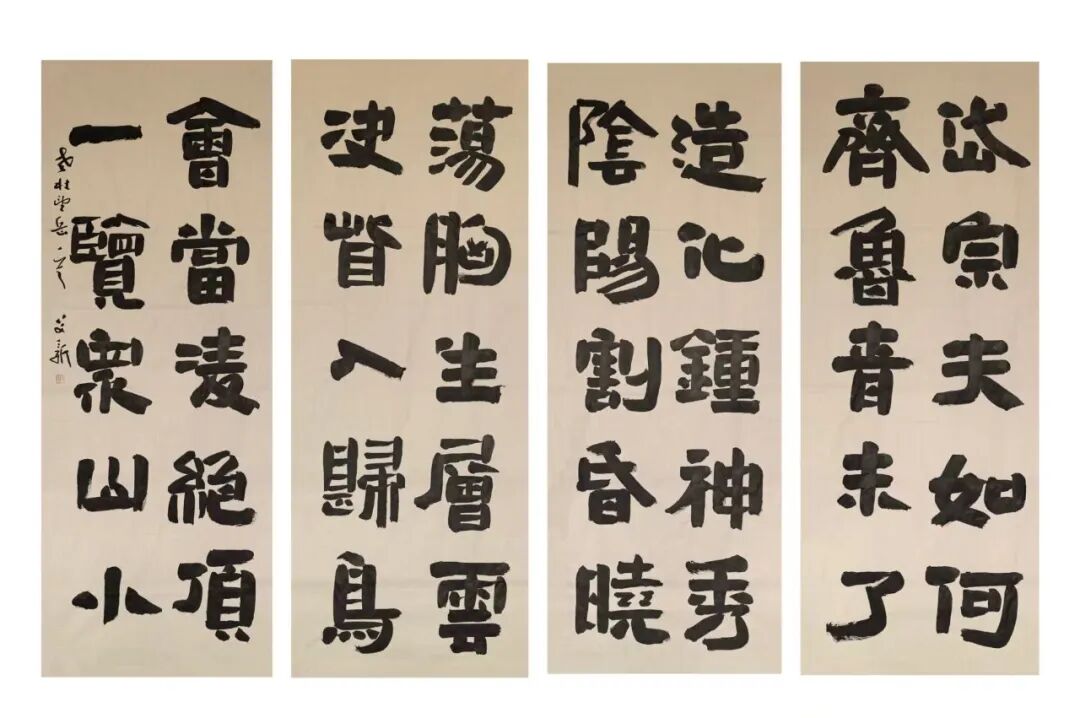 岱宗夫如何
齊魯青未了
造化鍾神秀
陰陽割昏曉
蕩胸生層雲
決眥入歸鳥
會當淩絶頂
一覽衆山小
老杜望岳